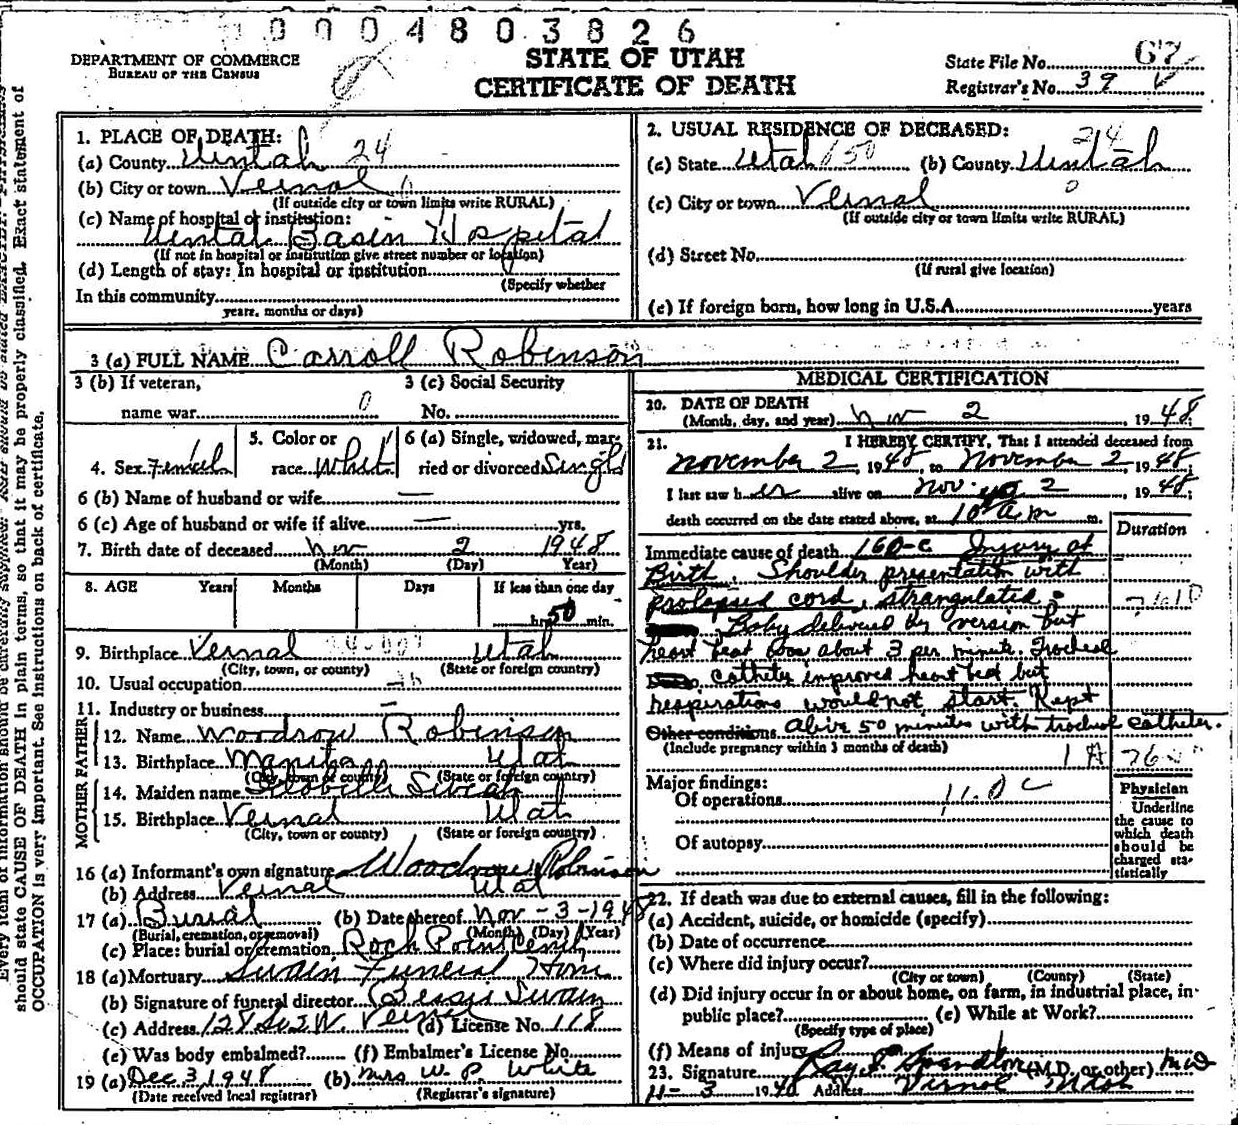 0004803826
DEPARTMENT OF COMMERCE
BUREAU OF THE CENSUS
STATE OF UTAH
CERTIFICATE OF DEATH
State File No. 67
Registrar's No. 39
Every item of information should be carefully supplied.
should state CAUSE OF DEATH in plain terms, so that it may be properly classified. Exact statement of
OCCUPATION is very important. See instructions on back of certificate.
1. PLACE OF DEATH:
(a) County Uintah 24
(b) City or town Vernal
(If outside city or town limits write RURAL)
(c) Name of hospital or institution:
Uintah Basin Hospital
(If not in hospital or institution give street number or location)
(d) Length of stay: In hospital or institution
(Specify whether
In this community
years, months or days)
2. USUAL RESIDENCE OF DECEASED:
(a) State Utah 650 (b) County Uintah 24
(c) City or town Vernal 0
(If outside city or town limits write RURAL)
(d) Street No.
(If rural give location)
(e) If foreign born, how long in U.S.A. years
3 (a) FULL NAME Carroll Robinson
3 (b) If veteran,
name war 0
3 (c) Social Security
No.
4. Sex Female
5. Color or
race White
6 (a) Single, widowed, mar-
ried or divorced Single
6 (b) Name of husband or wife —
6 (c) Age of husband or wife if alive — yrs.
7. Birth date of deceased Nov 2 1948
(Month) (Day) Year)
8. AGE Years Months Days If less than one day
hr. 50 min.
9. Birthplace Vernal Utah
(City, town, or county) (State or foreign country)
10. Usual occupation
11. Industry or business —
FATHER
12. Name Woodrow Robinson
13. Birthplace Manila Utah
(City, town or county) (State or foreign country)
MOTHER
14. Maiden name
15. Birthplace Vernal Utah
(City, town or county) (State or foreign country)
16 (a) Informant's own signature Woodrow Robinson
(b) Address Vernal Utah
17 (a) Burial (b) Date thereof Nov-3-1948
(Burial, cremation, or removal) (Month) (Day) (Year)
(c) Place: burial or cremation Rock Point Cem
18 (a) Mortuary Swain Funeral Home
(b) Signature of funeral director Bessie Swain
(c) Address 128 So 2 W. Vernal (d) License No. 118
(e) Was body embalmed? (f) Embalmer's License No.
19 (a) Dec 3, 1948 (b) Mrs W. P. White
(Date received local registrar) (Registrar's signature)
MEDICAL CERTIFICATION
20. DATE OF DEATH
(Month, day, and year) Nov 2, 1948
21. I HEREBY CERTIFY, That I attended deceased from
November 2, 1948, to November 2, 1948;
I last saw her alive on Nov. 2, 1948;
death occurred on the date stated above, at 10 am m.
Duration
Immediate cause of death 160-c Injury at
Birth. Shoulder presentation with
prolapsed cord, strangulated.
7610
Baby delivered by version but
heart beat was about 3 per minute. Tracheal
catheter improved heart beat but
respirations would not start. Kept
Other conditions alive 50 minutes with tracheal catheter.
(Include pregnancy within 3 months of death)
Major findings:
Of operations
Of autopsy
Physician
Underline
the cause to
which death
should be
charged sta-
tistically
22. If death was due to external causes, fill in the following:
(a) Accident, suicide, or homicide (specify)
(b) Date of occurrence
(c) Where did injury occur?
(City or town) (County) (State)
(d) Did injury occur in or about home, on farm, in industrial place, in
public place? (e) While at Work?
(Specify type of place)
(f) Means of injury
23. Signature Ray E. Spendlove (M.D. or other) MD
11-3 1948 Address Vernal Utah